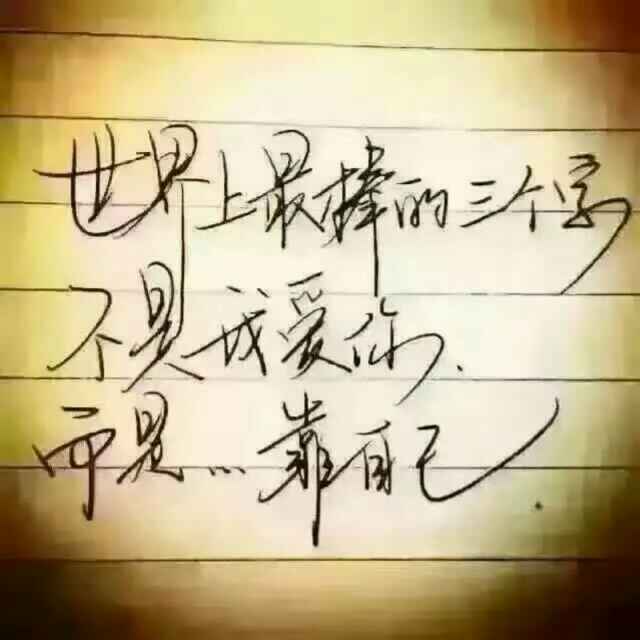 世界上最棒的三个字
不是我爱你、
而是…靠自己.